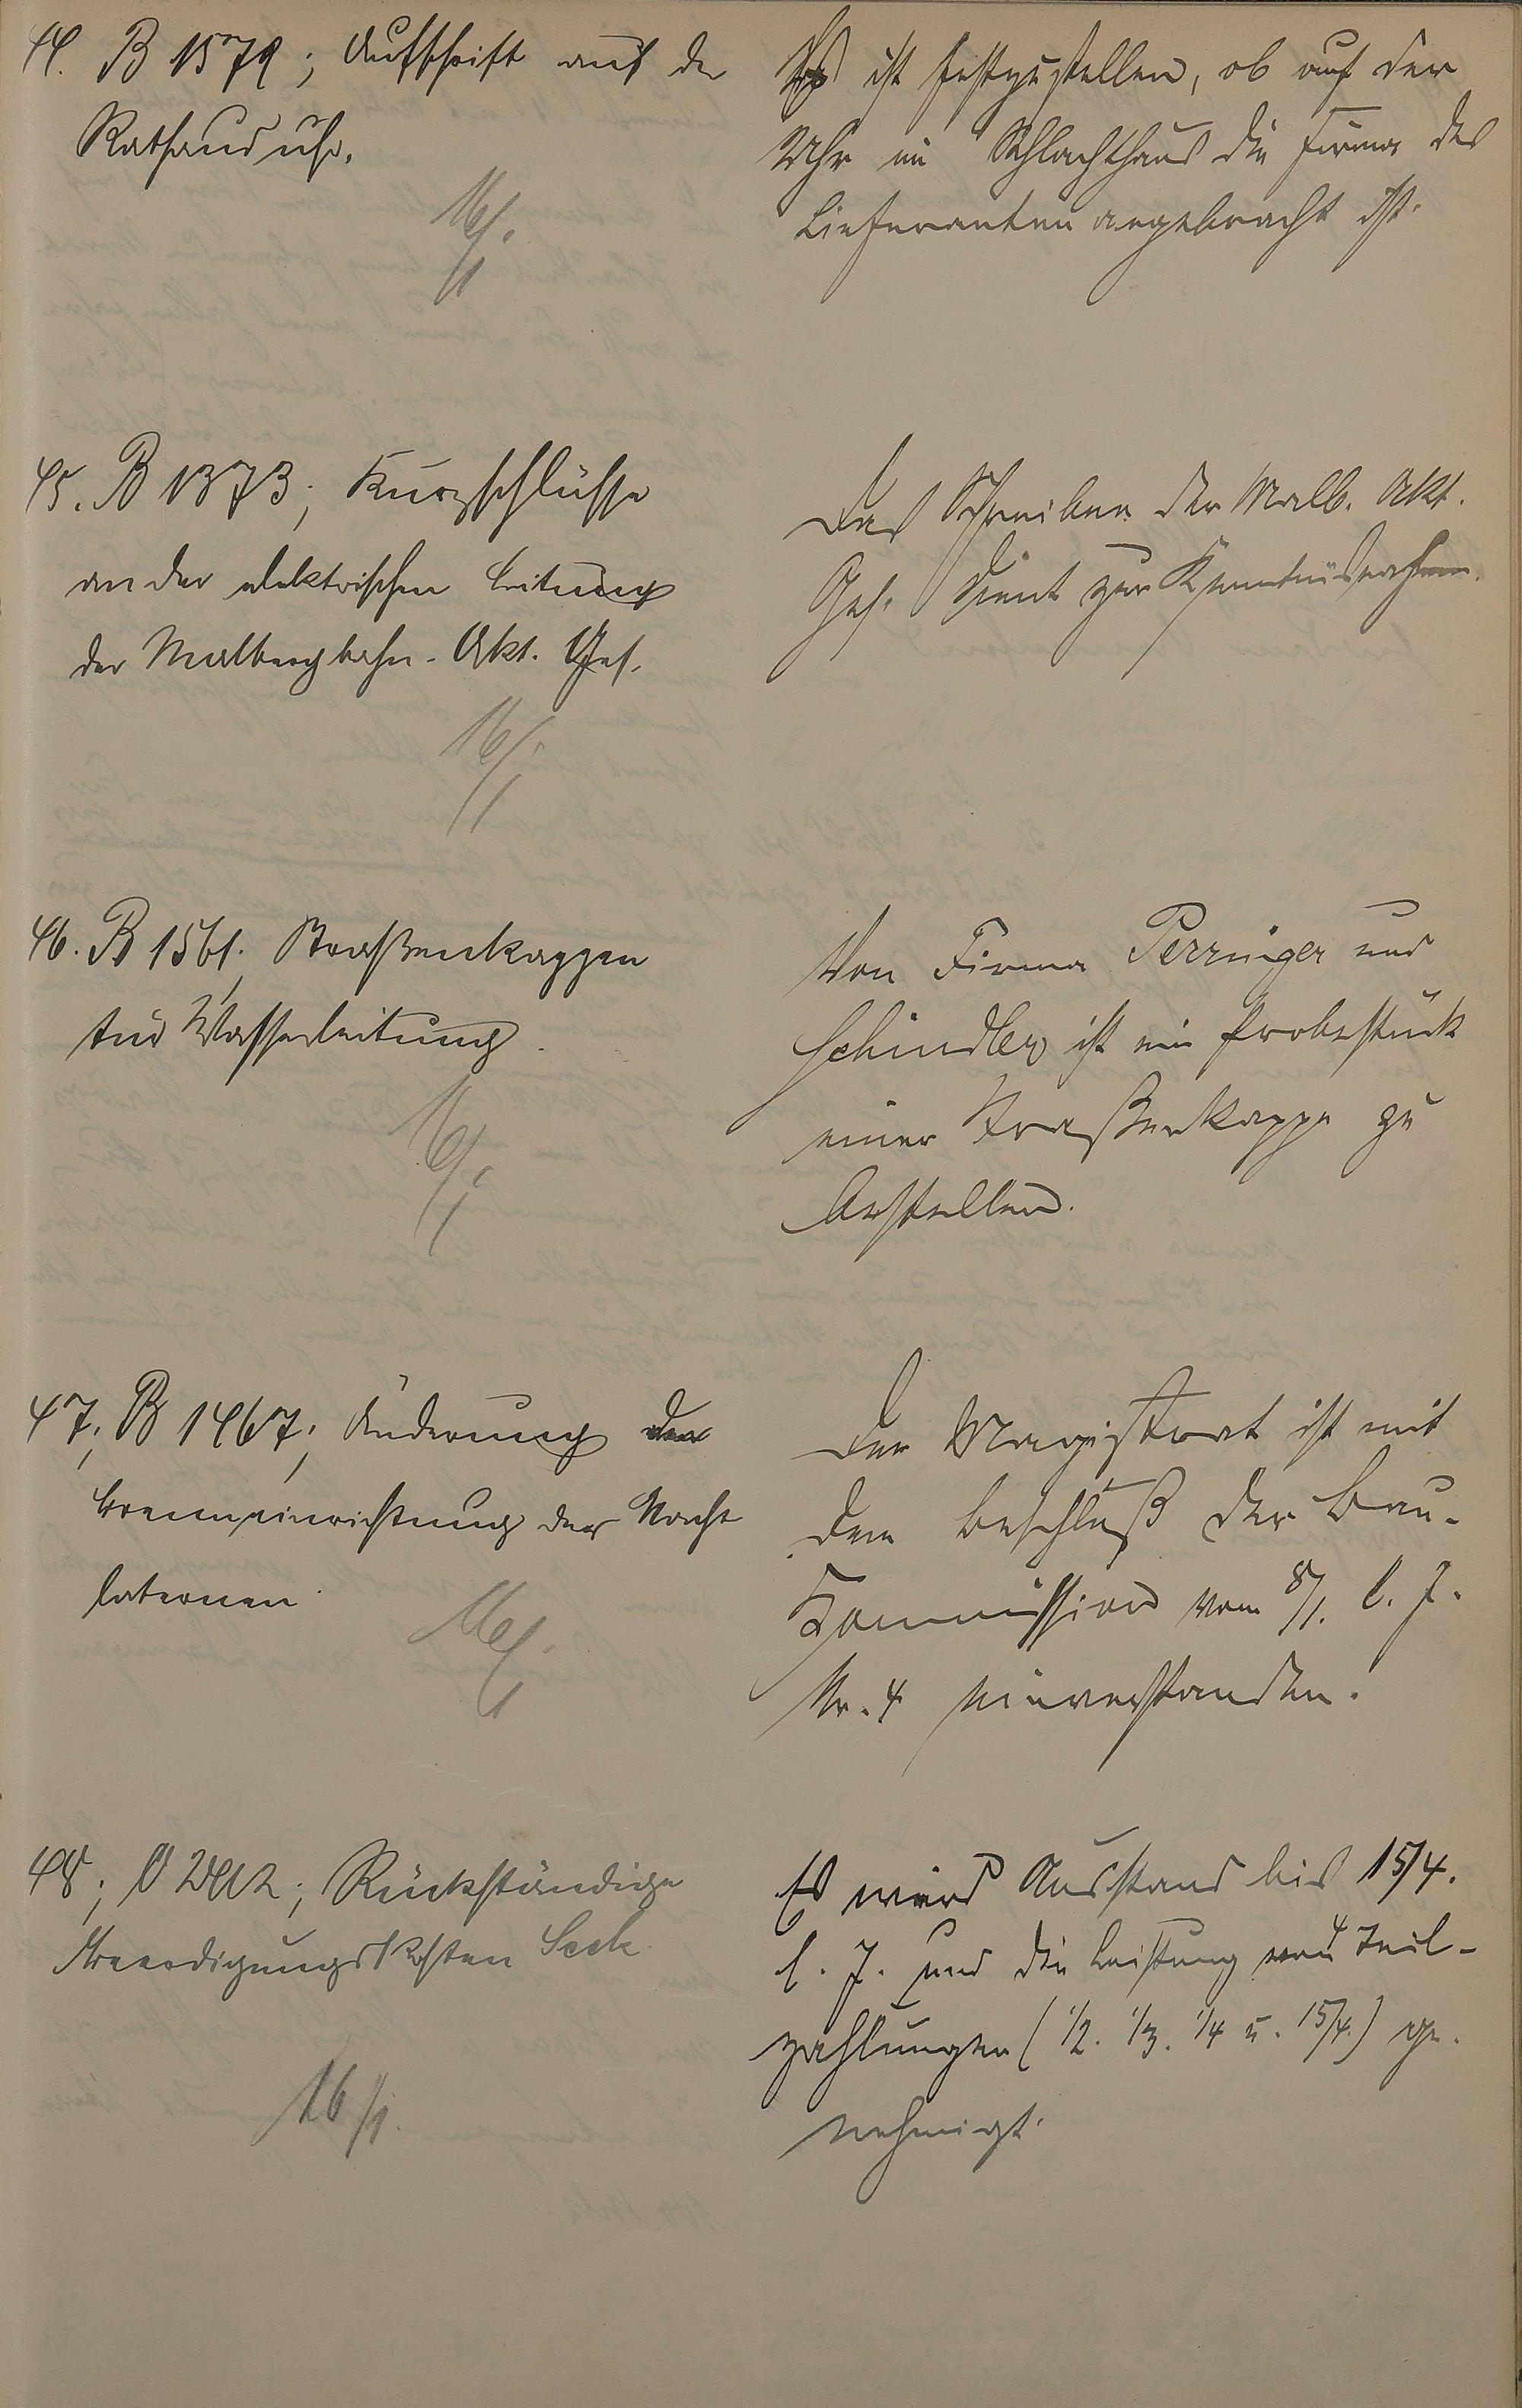 44. B 1579; Aufschrift auf der
Rathausuhr.
16/1.
Es ist festzustellen, ob auf der
Uhr im Schlachthaus die Firma des
Lieferanten angebracht ist.
45. B 1373; Kurzschlüsse
an der elektrischen Leitung
der Malbergbahn-Akt. Ges.
16/1.
Das Schreiben der Malb. Akt.
Ges. dient zur Kenntnisnahme.
46. B 1561; Straßenkappen
zur Wasserleitung.
16/1.
Von Firma Perringer und
Schindler ist ein Probestück
einer Straßenkappe zu
bestellen.
47; B 1467; Änderung der
Brenneinrichtung der Nacht
laternen
16/1.
Der Magistrat ist mit
dem Beschluß der Bau-
Kommission vom 8/1. l. J.
Nr. 4 einverstanden.
48; Rückständige
Beerdigungskosten Seck.
16/1.
Es wird Ausstand bis 15/4.
l. J. und die Leistung von 4 Teil-
zahlungen (1/2. 1/3. 1/4 u. 15/4.) ge-
nehmigt.